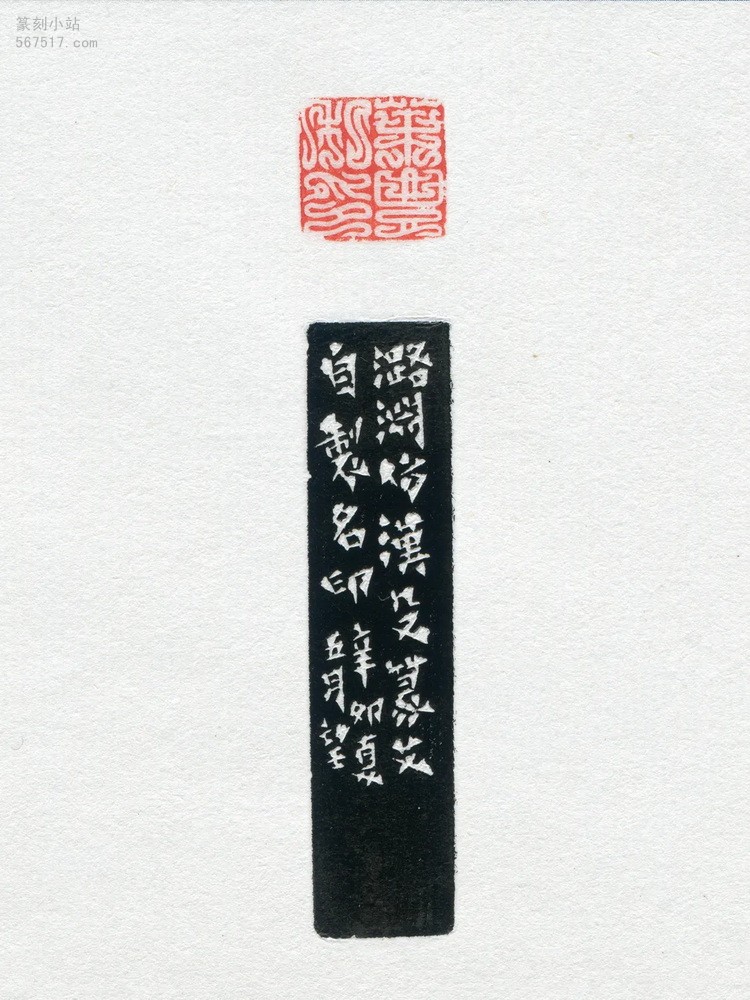 篆刻小站
567517.com
潞淵仿漢殳篆文
自製名印
辛卯夏
五月望